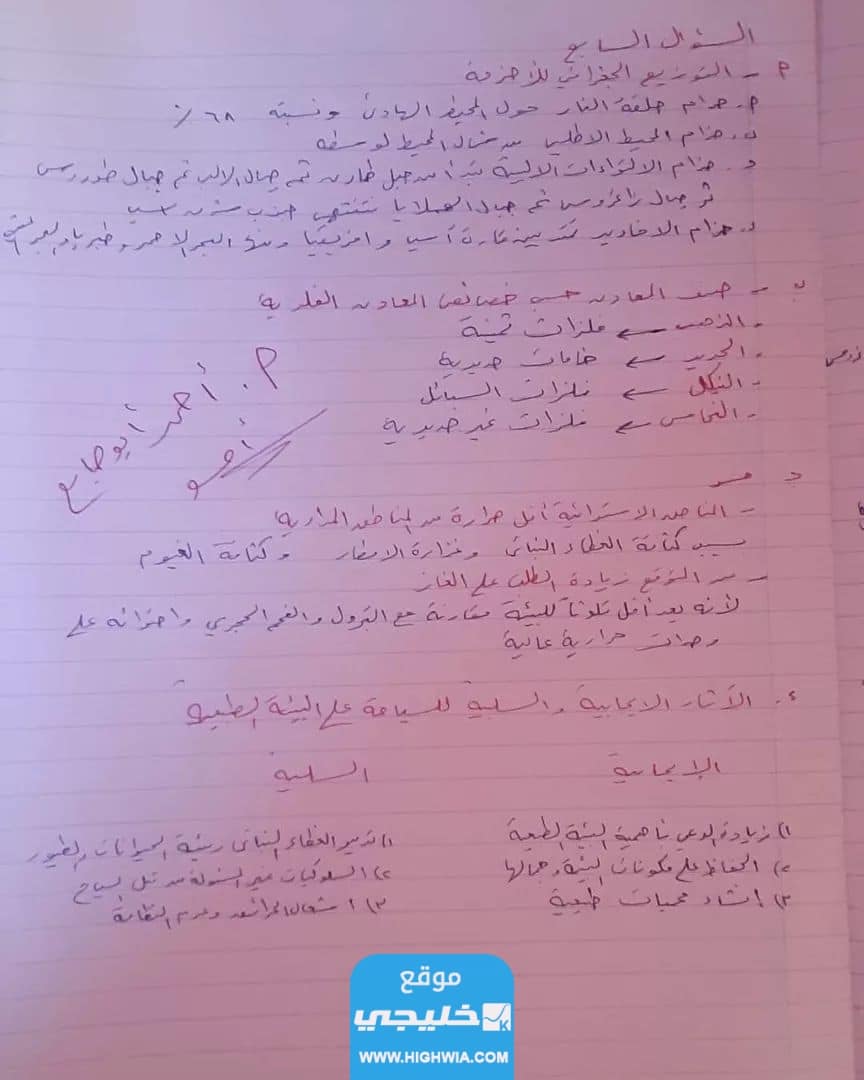 السؤال السابع
أ - التوزيع الجغرافي للأحزمة
أ. حزام حلقة النار حول المحيط الهادئ ونسبته ٦٨٪
ب. حزام المحيط الاطلسي من شمال المحيط لوسطه
ج. حزام الالتواءات الالبية تبدأ من جبل طارق ثم جبال الالب ثم جبال طوروس
ثم جبال زاغروس ثم جبال الهملايا تنتهي جنوب شرق اسيا
د. حزام الاخاديد تمتد بين قارة آسيا وافريقيا ومنها البحر الاحمر وطبريا والبحر الميت
ب - صنف المعادن حسب خصائص المعادن الفلزية
- الذهب ← فلزات ثمينة
- الحديد ← خامات حديدية
- النيكل ← فلزات السبائك
- النحاس ← فلزات غير حديدية
أ. أحمد أبو جامع
ج فسر
- المناطق الاستوائية أقل حرارة من المناطق المدارية
بسبب كثافة الغطاء النباتي وغزارة الامطار وكثافة الغيوم
- من المتوقع زيادة الطلب على الغاز
لأنه يعد أقل تلوثاً للبيئة مقارنة مع البترول والفحم الحجري واحتوائه على
وحدات حرارية عالية
د. الآثار الايجابية والسلبية للسياحة على البيئة الطبيعية
الإيجابية السلبية
١) زيادة الوعي بأهمية البيئة الطبيعية ١) تدمير الغطاء النباتي وبيئة الحيوانات والطيور
٢) الحفاظ على مكونات البيئة وجمالها ٢) السلوكيات غير المسئولة من قبل السياح
٣) إنشاء محميات طبيعية ٣) اشعال الحرائق وعدم النظافة
موقع
خليجي
WWW.HIGHWIA.COM